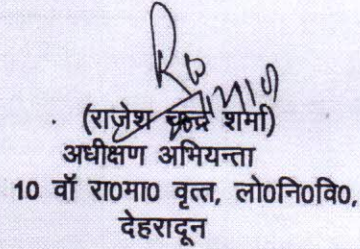 (राजेश चन्द्र शर्मा)
अधीक्षण अभियन्ता
10 वॉ रा0मा0 वृत्त, लो0नि0वि0,
देहरादून